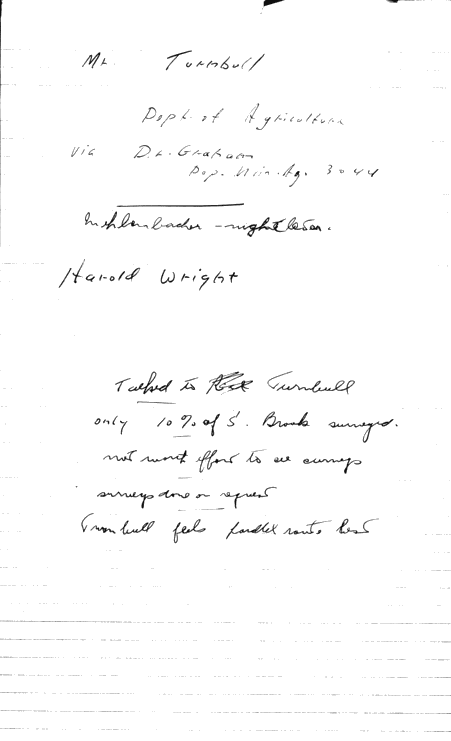 Mr. Turnbull
Dept. of Agriculture
via Dr. Graham
Dep. Min. Ag. 3044
Mehlenbacher - night letter.
Harold Wright
Talked to Turnbull
only 10% of S. Brook surveyed.
not worth effort to see surveys
surveys done on request
Turnbull feels parallel route best